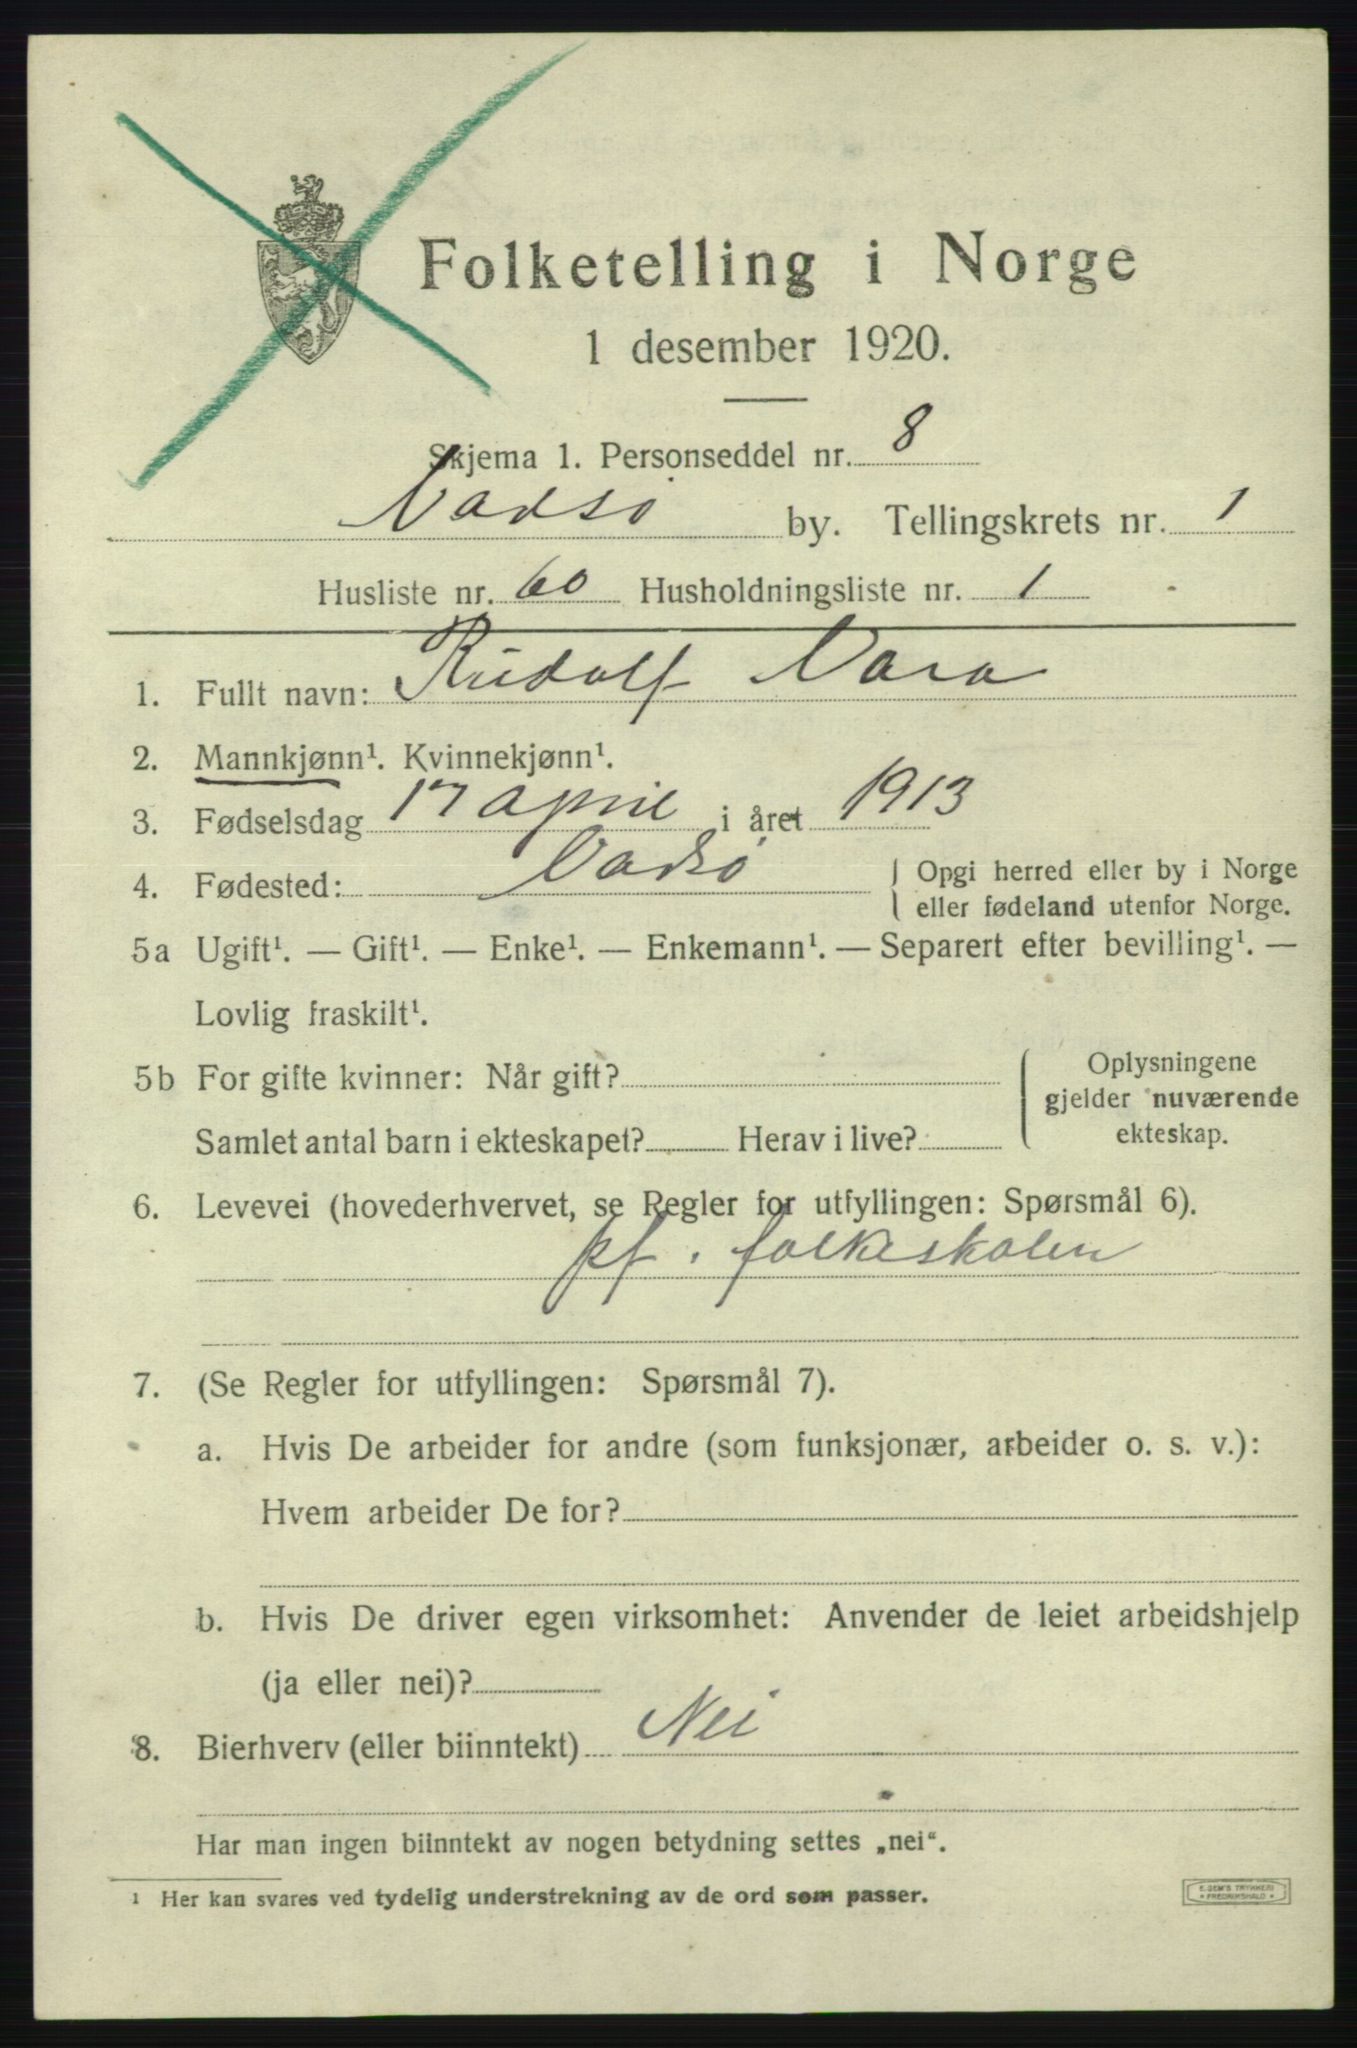 Folketelling i Norge
1 desember 1920.
Skjema 1. Personseddel nr. 8
Vadsø by. Tellingskrets nr. 1
Husliste nr. 60 Husholdningsliste nr. 1
1. Fullt navn: Rudolf Vara
2. Mannkjønn¹. Kvinnekjønn¹.
3. Fødselsdag 17 april i året 1913
4. Fødested: Vadsø
Opgi herred eller by i Norge
eller fødeland utenfor Norge.
5a Ugift¹. — Gift¹. — Enke¹. — Enkemann¹. — Separert efter bevilling¹. —
Lovlig fraskilt¹.
5b For gifte kvinner: Når gift?
Samlet antal barn i ekteskapet? Herav i live?
Oplysningene
gjelder nuværende
ekteskap.
6. Levevei (hovederhvervet, se Regler for utfyllingen: Spørsmål 6).
folkeskolen
7. (Se Regler for utfyllingen: Spørsmål 7).
a. Hvis De arbeider for andre (som funksjonær, arbeider o. s. v.):
Hvem arbeider De for?
b. Hvis De driver egen virksomhet: Anvender de leiet arbeidshjelp
(ja eller nei)?
8. Bierhverv (eller biinntekt) Nei
Har man ingen biinntekt av nogen betydning settes „nei“.
¹ Her kan svares ved tydelig understrekning av de ord som passer.
E. SEM'S TRYKKERI
• FREDRIKSHALD •